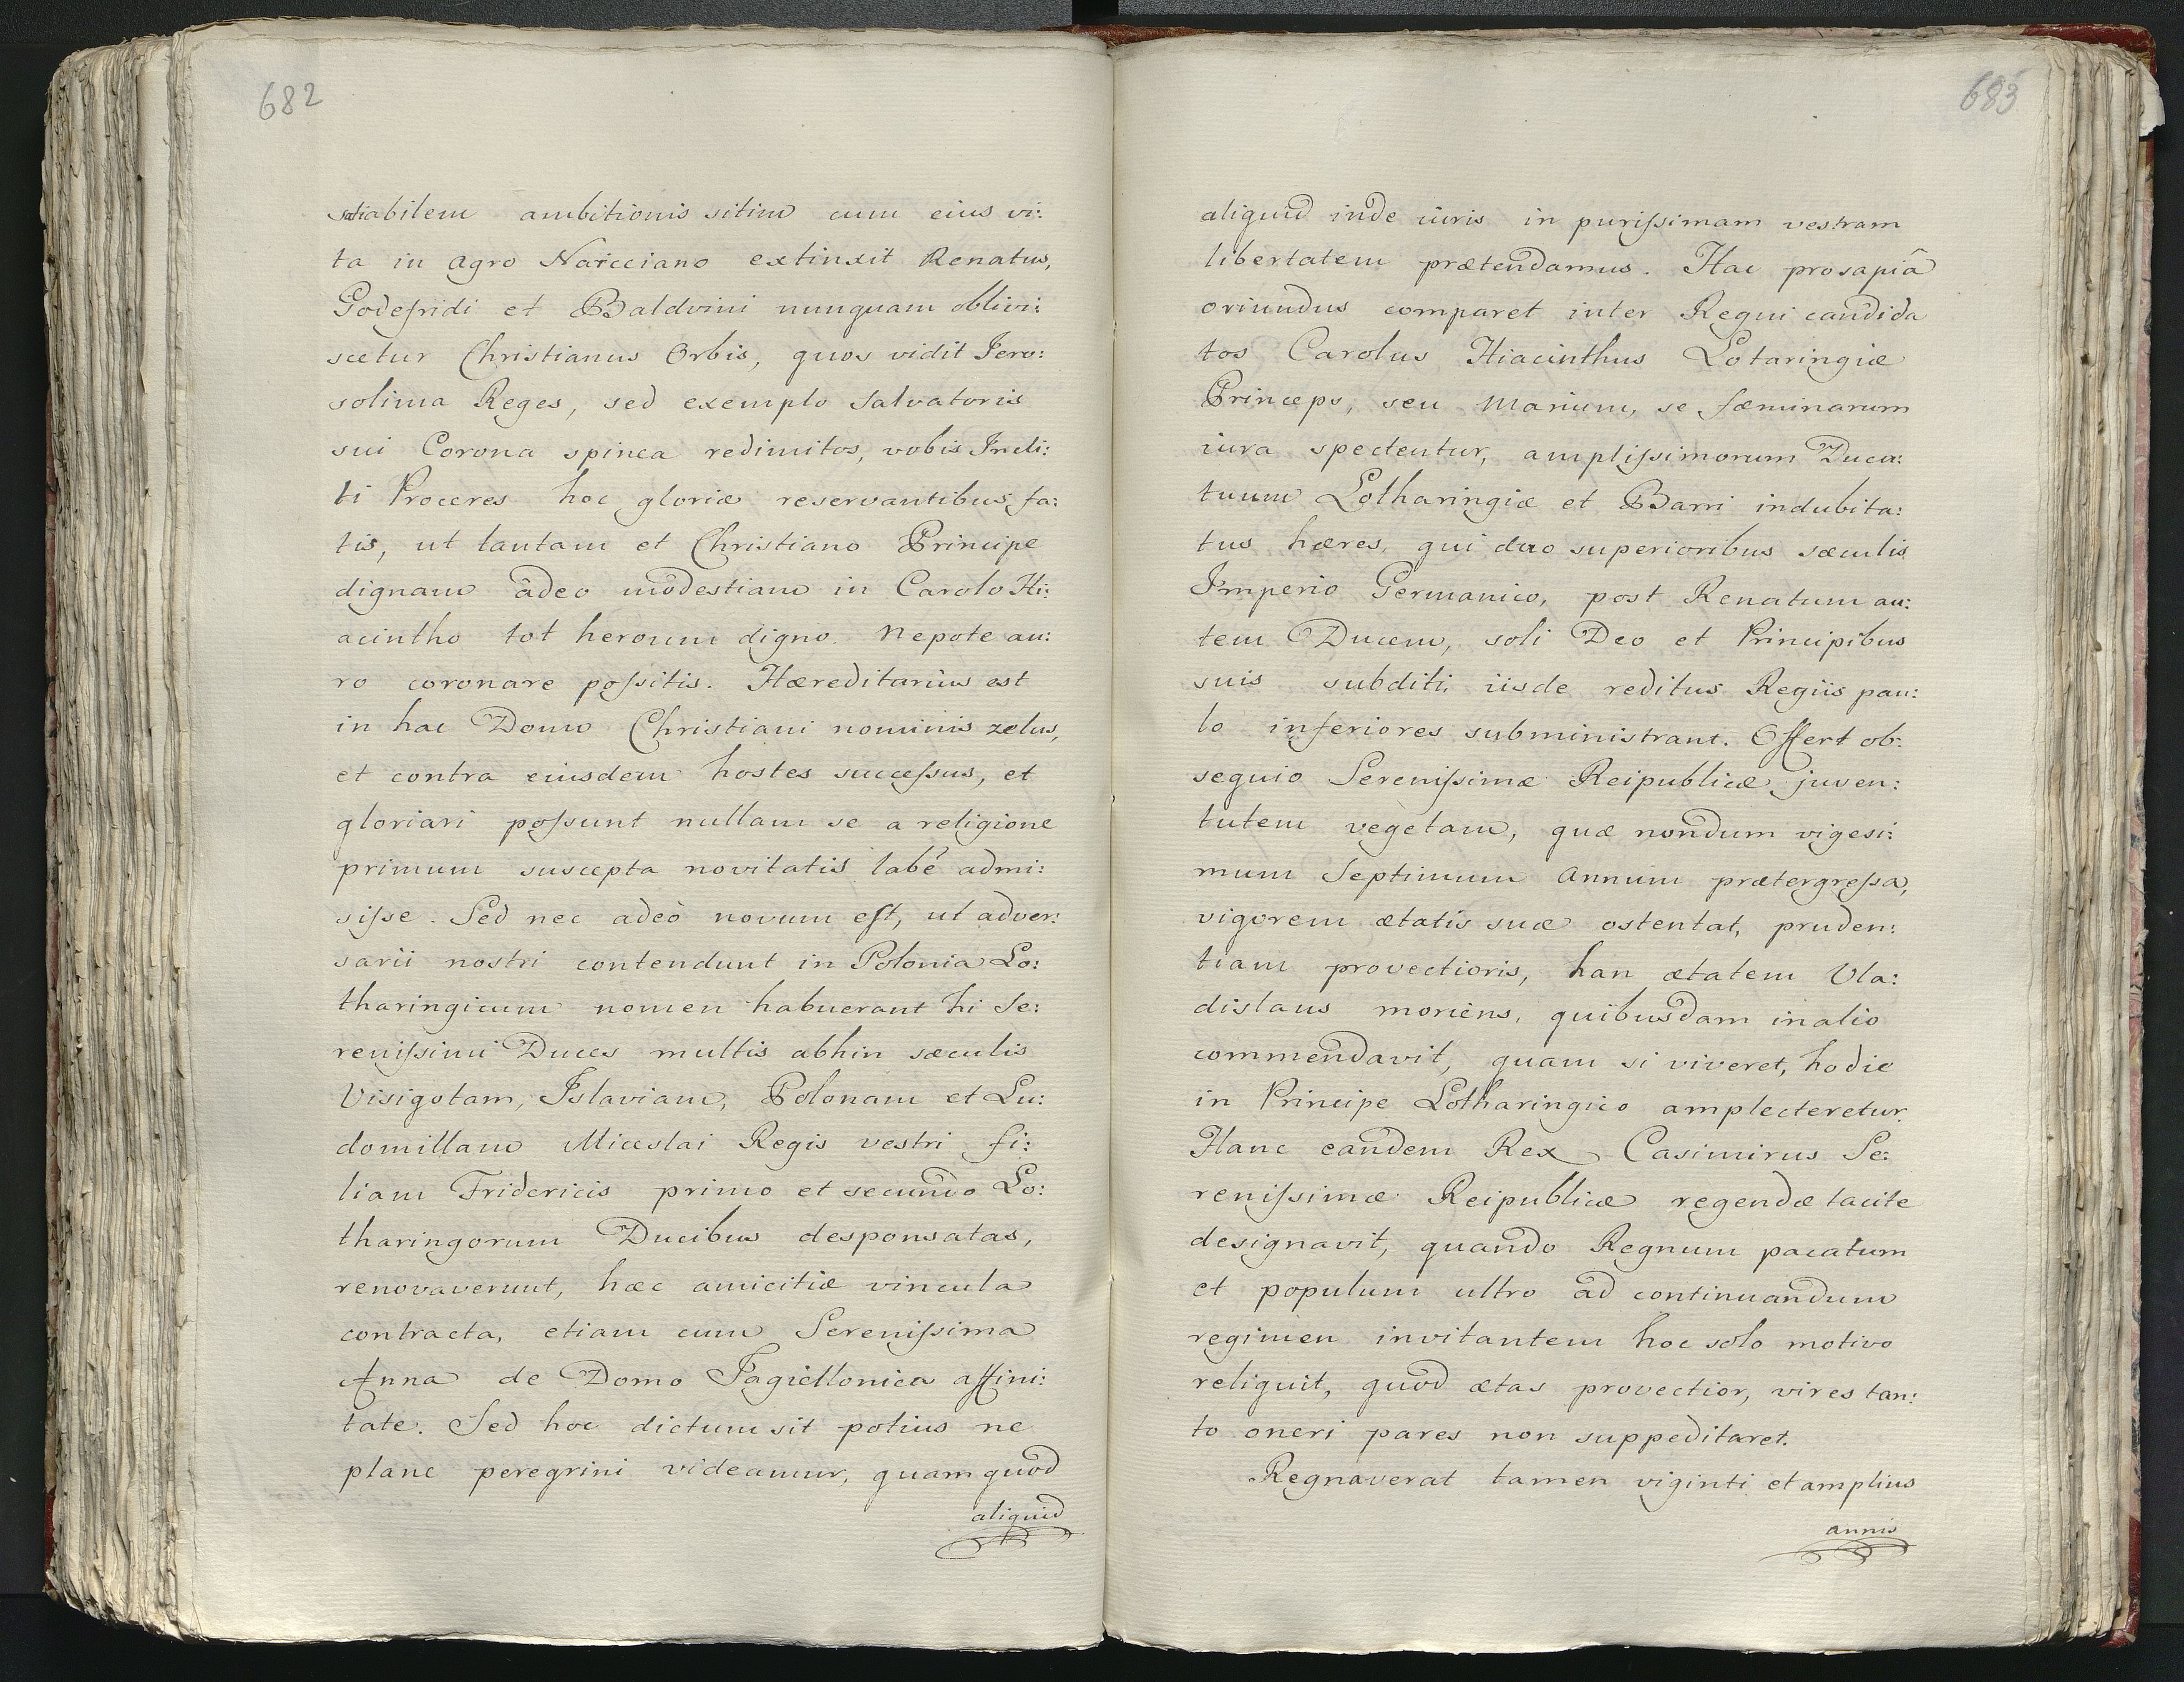 682
satiabilem ambitionis sitim cum eius vi:
ta in agro Naicciano extinxit Renatus,
Godefridi et Baldvini nunquam oblivi:
scetur Christianus Orbis, quos vidit Jero:
solima Reges, sed exemplo Salvatoris
sui Corona spinea redimitos, vobis Incli:
ti Proceres hoc gloriæ reservantibus fa:
tis, ut tantam et Christiano Principe
dignam âdeo modestiam in Carolo Hi:
acintho tot heroum digno. Nepote au:
ro coronare poſsitis. Hæreditarius est
in hac Domo Christiani nominis zelus,
et contra eiusdem hostes succeſsus, et
gloriari poſsunt nullam se a religione
primum suscepta novitatis labê admi:
siſse. Sed nec adeò novum eſt, ut adver:
sarii nostri contendunt in Polonia Lo:
tharingicum nomen habuerant hi Se:
reniſsimi Duces multis abhin sæculis
Visigotam, Islaviam, Polonam et Lu:
domillam Miceslai Regis vestri fi:
liam Fridericis primo et secundo Lo:
tharingorum Ducibus desponsatas,
renovaverunt, hæc amicitiæ vincula
contracta, etiam cum Sereniſsima
Anna de Domo Jagiellonica affini:
tate. Sed hoc dictum sit potius ne
plane peregrini videamur, quam quod
aliquid
683
aliquid inde iuris in puriſsimam vestram
libertatem prætendamus. Hac prosapiâ
oriundus comparet inter Regni candida
tos Carolus Hiacinthus Lotaringiæ
Princeps, seu Marium, se fæminarum
iura spectentur, ampliſsimorum Duca:
tuum Lotharingiæ et Barri indubita:
tus hæres, qui duo superioribus sæculis
Imperio Germanico, post Renatum au:
tem Ducem, soli Deo et Principibus
suis subditi, iisde reditus Regiis pau:
lo inferiores subministrant. Offert ob:
sequio Sereniſsimæ Reipublicæ juven:
tutem vegetam, quæ nondum vigesi:
mum Septimum Annum prætergreſsa,
vigorem ætatis suæ ostentat, pruden:
tiam provectioris, han ætatem Vla:
dislaus moriens, quibusdam in alio
commendavit, quam si viveret, hodie
in Principe Lotharingico amplecteretur
Hanc eandem Rex Casimirus Se:
reniſsimæ Reipublicæ regendæ tacite
designavit, quando Regnum pacatum
et populum ultro ad continuandum
regimen invitantem hoc solo motivo
reliquit, quod ætas provectior, vires tan:
to oneri pares non suppeditaret.
Regnaverat tamen viginti et amplius
annis